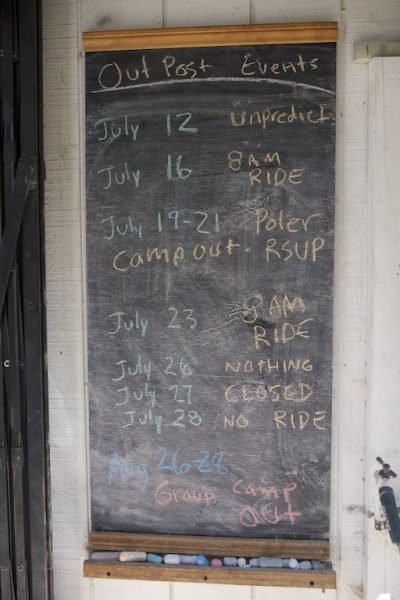 Out Post Events
July 12 unpredict
July 16 8AM
RIDE
July 19-21 Poler
Camp out - RSUP
July 23 8 AM
RIDE
July 26 NOTHING
July 27 CLOSED
July 28 NO RIDE
Aug 26-28
Group Camp
Out